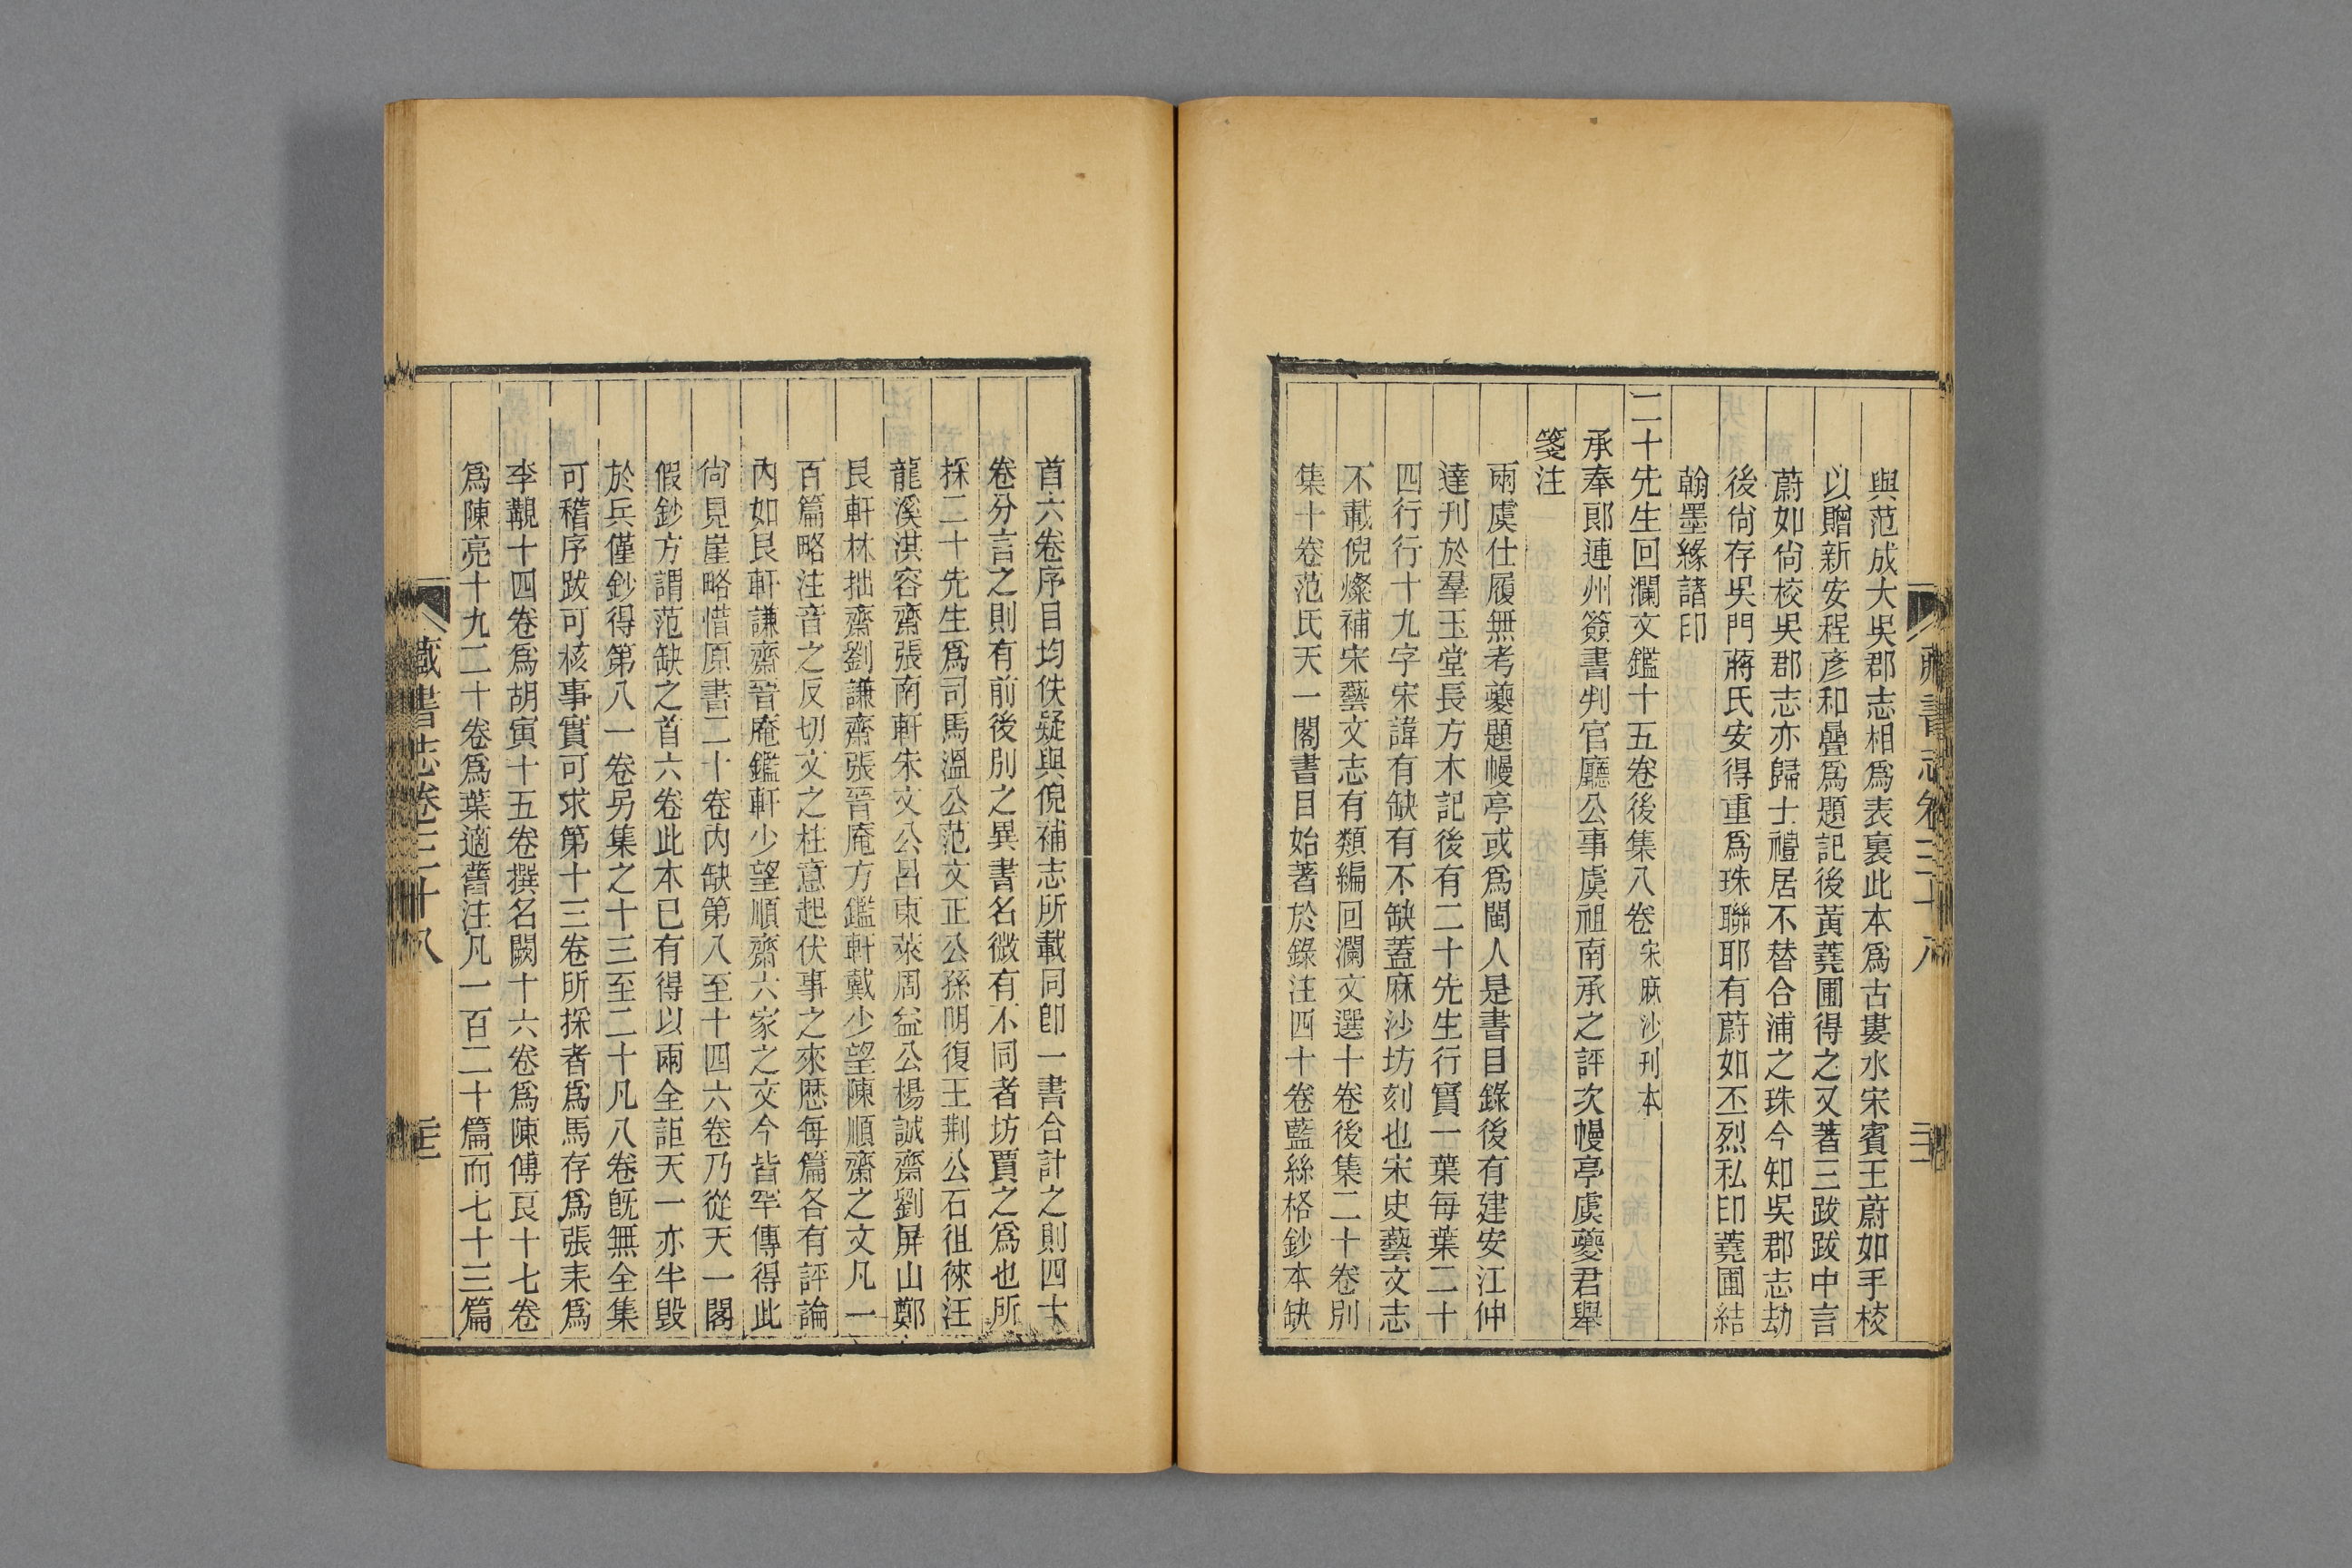 與范成大吳郡志相爲表裏此本爲古婁水宋賓王蔚如手校
以贈新安程彥和疊爲題記後黃蕘圃得之又著三跋跋中言
蔚如尙校吳郡志亦歸士禮居不替合浦之珠今知吳郡志劫
後尙存吳門蔣氏安得重爲珠聯耶有蔚如丕烈私印蕘圃結
翰墨緣諸印
二十先生回瀾文鑑十五卷後集八卷宋麻沙刊本
承奉郎連州簽書判官廳公事虞祖南承之評次幔亭虞夔君舉
箋注
兩虞仕履無考夔題幔亭或爲閩人是書目錄後有建安江仲
達刊於羣玉堂長方木記後有二十先生行實一葉每葉二十
四行行十九字宋諱有缺有不缺蓋麻沙坊刻也宋史藝文志
不載倪燦補宋藝文志有類編回瀾文選十卷後集二十卷別
集十卷范氏天一閣書目始著於錄注四十卷藍絲格鈔本缺
首六卷序目均佚疑與倪補志所載同卽一書合計之則四十
卷分言之則有前後別之異書名微有不同者坊賈之爲也所
採二十先生爲司馬溫公范文正公孫明復王荆公石徂徠汪
龍溪洪容齋張南軒朱文公呂東萊周益公楊誠齋劉屏山鄭
艮軒林拙齋劉謙齋張晉庵方鑑軒戴少望陳順齋之文凡一
百篇略注音之反切文之柱意起伏事之來歷每篇各有評論
內如艮軒謙齋晉庵鑑軒少望順齋六家之文今皆罕傳得此
尙見崖略惜原書二十卷內缺第八至十四六卷乃從天一閣
假鈔方謂范缺之首六卷此本已有得以兩全詎天一亦半毀
於兵僅鈔得第八一卷另集之十三至二十凡八卷旣無全集
可稽序跋可核事實可求第十三卷所採者爲馬存爲張耒爲
李覯十四卷爲胡寅十五卷撰名闕十六卷爲陳傅良十七卷
爲陳亮十九二十卷爲葉適舊注凡一百二十篇而七十三篇
藏書志卷三十八